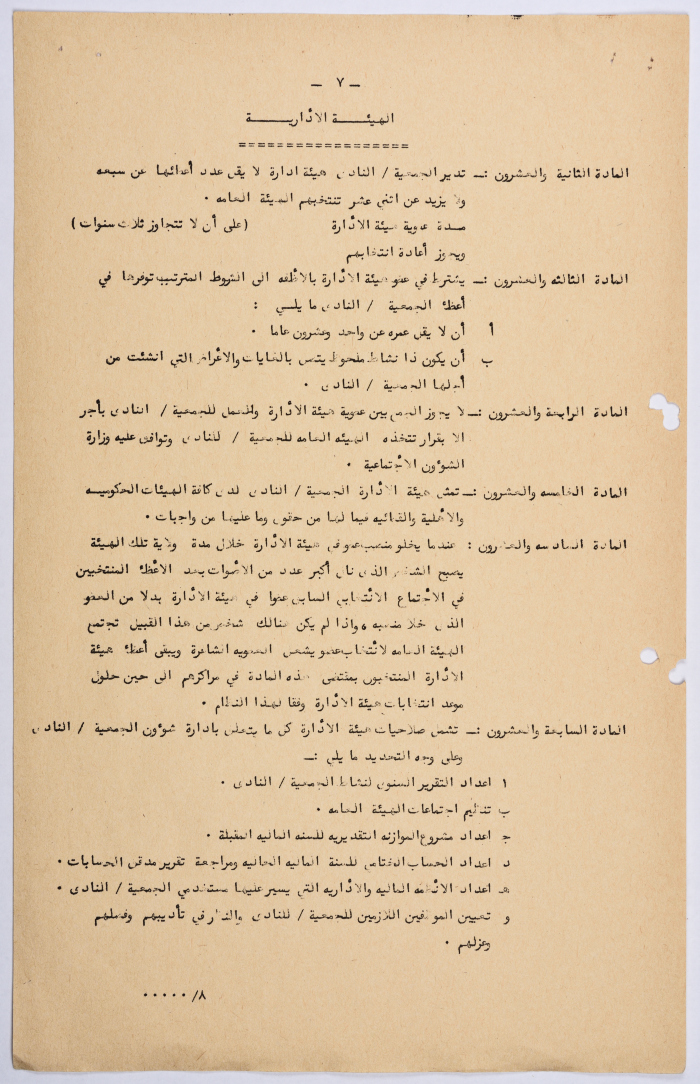 — ٧ —
الهيئة الأدارية
==================
المادة الثانية والعشرون :— تدير الجمعية / النادى هيئة ادارة لا يقل عدد أعضائها عن سبعه
ولا يزيد عن اثني عشر تنتخبهم الهيئة العامه ٠
مدة عضوية هيئة الأدارة (على أن لا تتجاوز ثلاث سنوات)
ويجوز أعادة انتخابهم
المادة الثالثه والعشرون :— يشترط في عضو هيئة الأدارة بالأضافه الى الشروط المترتب توفرها في
أعضاء الجمعية / النادى ما يلي :
أ أن لا يقل عمره عن واحد وعشرون عاما ٠
ب أن يكون ذا نشاط ملحوظ يتصل بالغايات والأغراض التي انشئت من
أجلها الجمعية / النادى ٠
المادة الرابعة والعشرون :— لا يجوز الجمع بين عضوية هيئة الأدارة والعمل للجمعية / النادى بأجر
الا بقرار تتخذه الهيئه العامه للجمعية / للنادى وتوافق عليه وزارة
الشؤون الأجتماعية ٠
المادة الخامسه والعشرون :— تمثل هيئة الأدارة الجمعية / النادى لدى كافة الهيئات الحكوميه
والأهلية والقضائيه فيما لها من حقوق وما عليها من واجبات ٠
المادة السادسه والعشرون : عندما يخلو منصب عضو في هيئة الأدارة خلال مدة ولاية تلك الهيئة
يصبح الشخص الذى نال أكبر عدد من الأصوات بعد الأعضاء المنتخبين
في الأجتماع الأنتخابي السابق عضوا في هيئة الأدارة بدلا من العضو
الذى خلا منصبه ، واذا لم يكن هنالك شخص من هذا القبيل تجتمع
الهيئة العامه لأنتخاب عضو يشغل العضويه الشاغرة ويبقى أعضاء هيئة
الأدارة المنتخبون بمقتضى هذه المادة في مراكزهم الى حين حلول
موعد انتخابات هيئة الأدارة وفقا لهذا النظام ٠
المادة السابعة والعشرون :— تشمل صلاحيات هيئة الأدارة كل ما يتعلق بادارة شؤون الجمعية / النادى
وعلى وجه التحديد ما يلي :—
ا اعداد التقرير السنوى لنشاط الجمعية / النادى ٠
ب تنظيم اجتماعات الهيئة العامه ٠
ج اعداد مشروع الموازنه التقديريه للسنه الماليه المقبلة ٠
د اعداد الحساب الختامي للسنة الماليه الحاليه ومراجعة تقرير مدقق الحسابات ٠
هـ اعداد الأنظمه الماليه والأداريه التي يسير عليها مستخدمي الجمعية / النادى ٠
و تعيين الموظفين اللازمين للجمعية / للنادى والنظر في تأديبهم وفصلهم
وعزلهم ٠
٨/ ٠٠٠٠٠